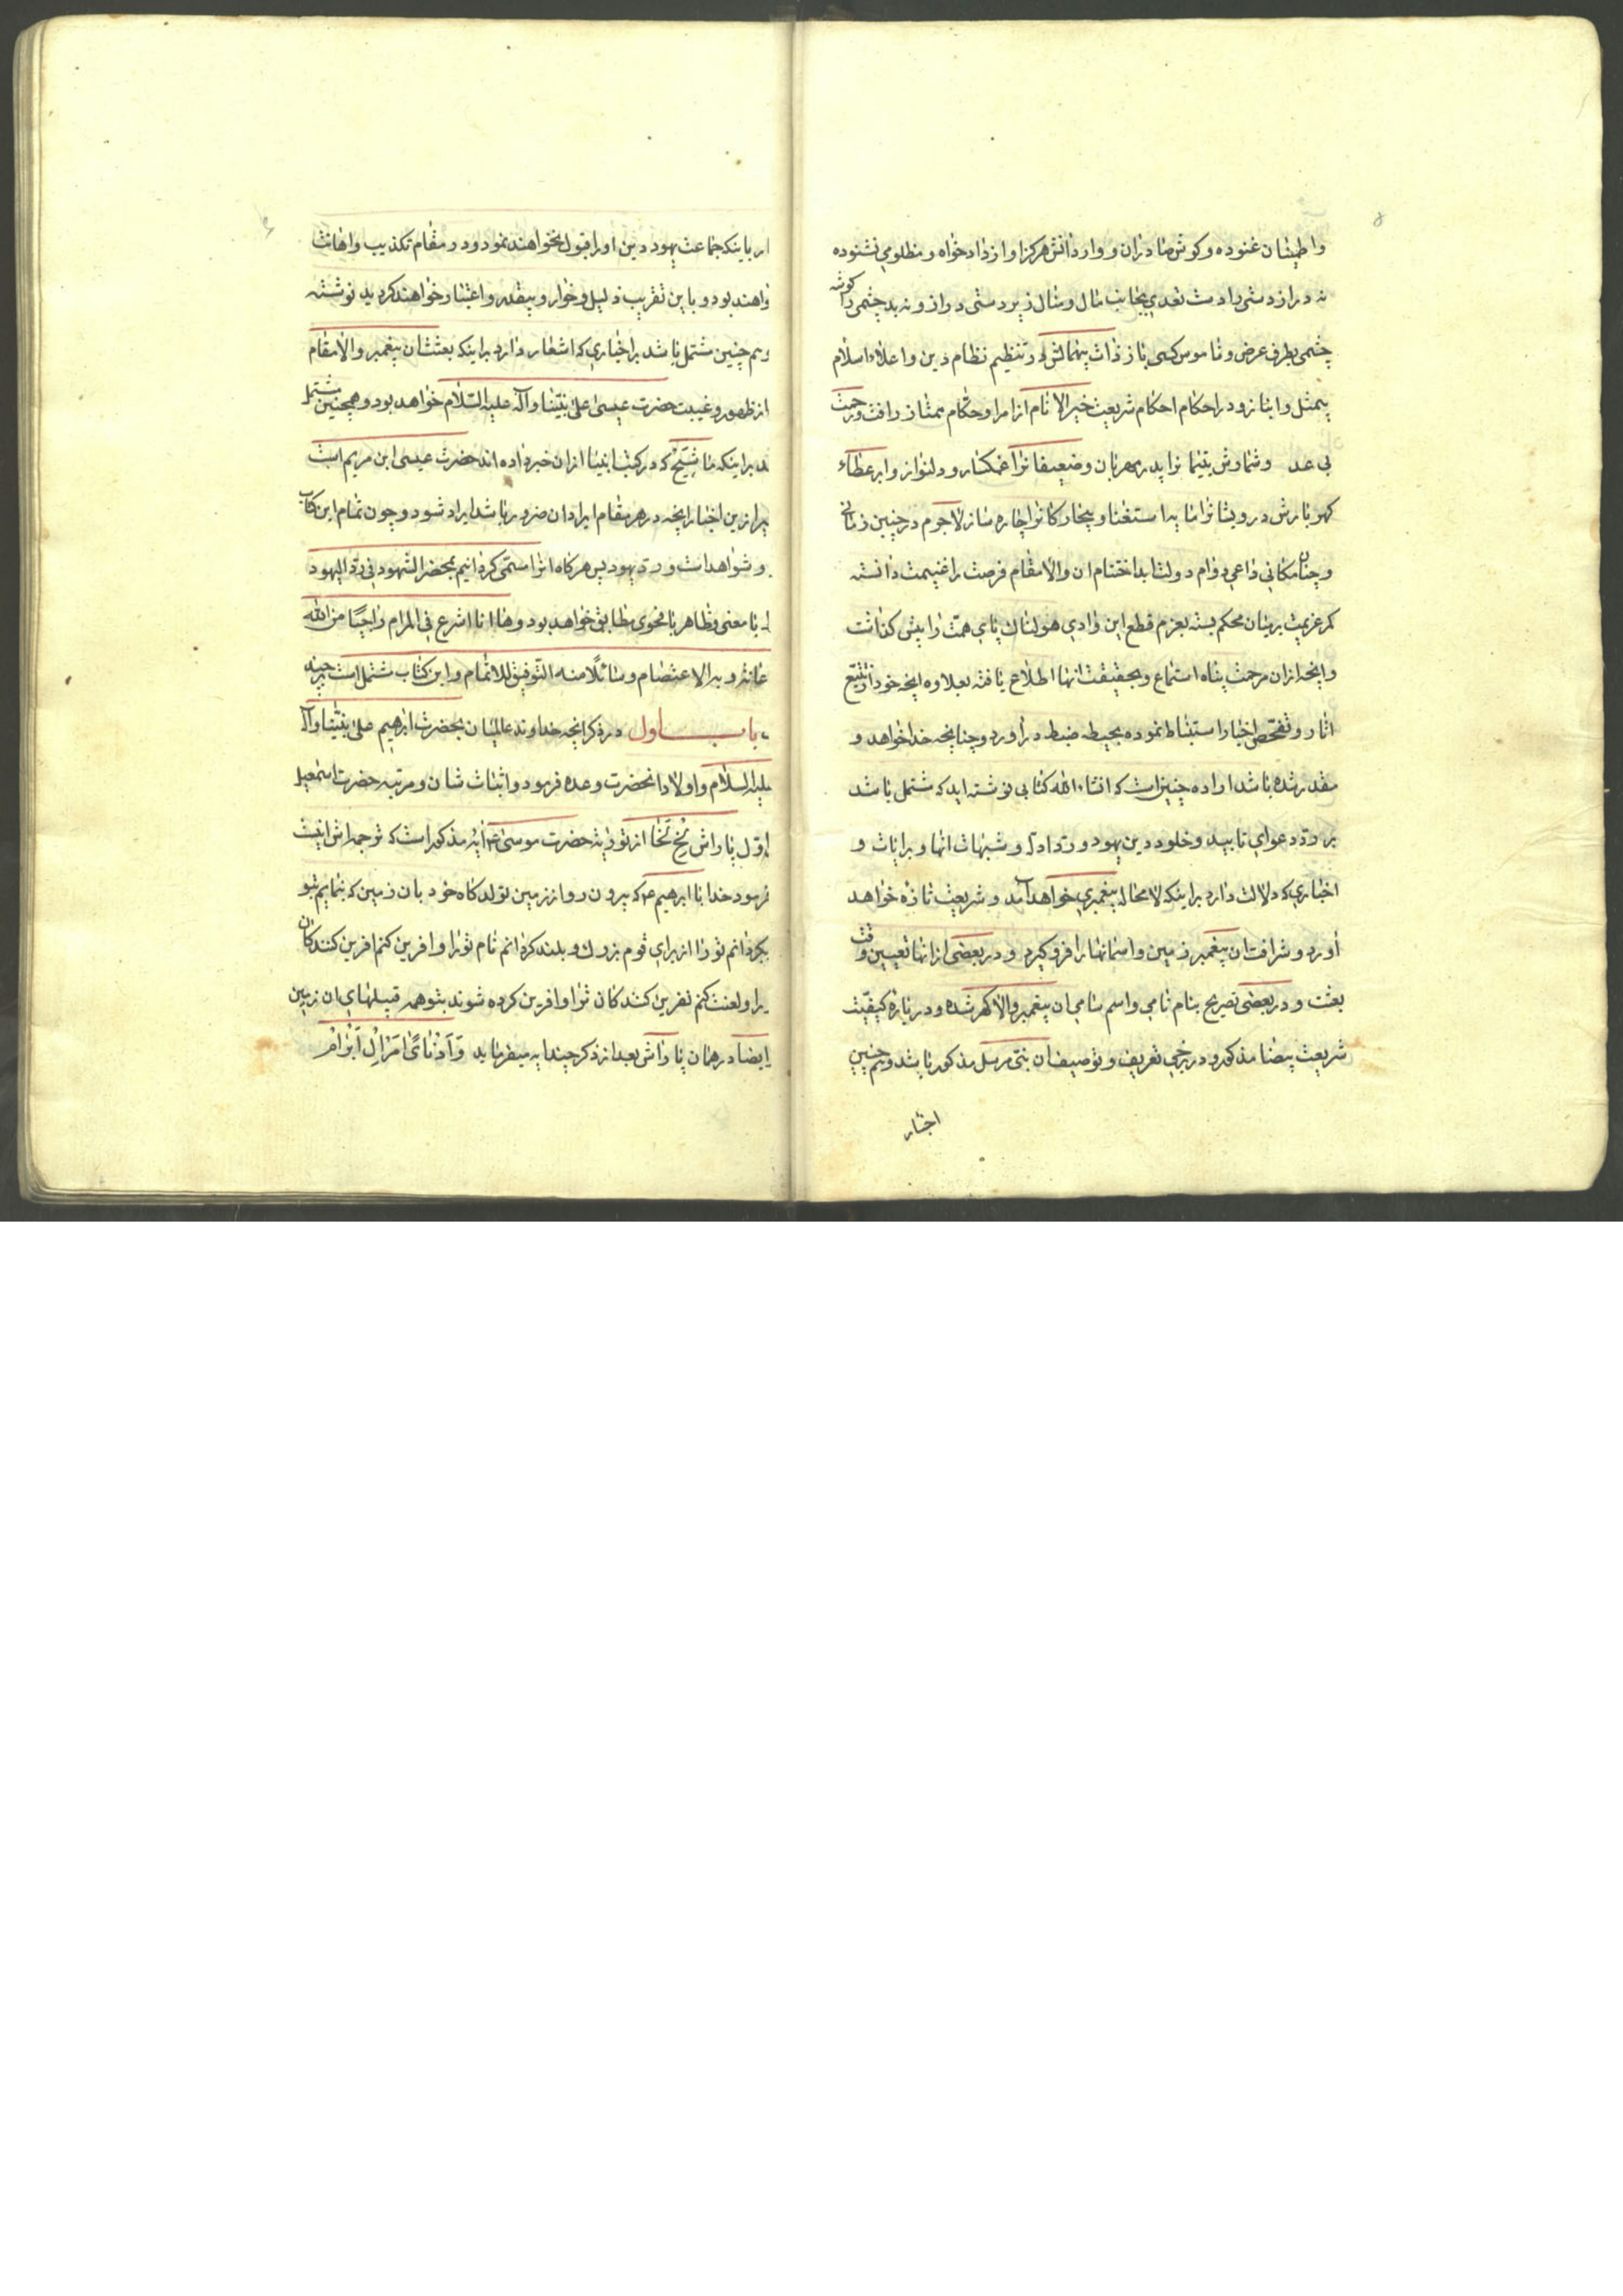 واطمینان غنوده و کوش صادران و واردانش هرکز اواز دادخواه و مظلومی نشنوده
نه دراز دستی را دست تعدی بجانب مال و منال زیردستی دراز و نه بد چشمی را کوشه
چشمی بطرف عرض و ناموس کسی باز ذات بیهمالش در تنظیم نظام دین و اعلاء اسلام
بیمثل و انباز و در احکام احکام شریعت خیر الانام از امرا و حکام ممتاز رافت و رحمت
بی عد و شمارش یتیمانرا پدر مهربان و ضعیفانرا غمکسار و دلنواز و ابر عطاء
کهر بارش درویشانرا مایه استغنا و بیچارکانرا چاره ساز لاجرم در چنین زمانی
و چنان مکانی داعی دوام دولت ابد اختتام ان والامقام فرصت را غنیمت دانسته
کمر عزیمت برمیان محکم بسته بعزم قطع این وادی هولناک پای همت را پیش کذاشت
و انچه ازان مرحمت پناه استماع و بحقیقت انها اطلاع یافته بعلاوه انچه خود از تتبع
اثار و تفحص اخبار استنباط نموده بحیطه ضبط دراورد و چنانچه خدا خواهد و
مقدر شده باشد اراده چنین است که انشاء الله کتابی نوشته اید که مشتمل باشد
بر رد دعوای تابید و خلود دین یهود و رد ادله و شبهات انها و بر ایات و
اخباری که دلالت دارد بر اینکه لامحاله پیغمبری خواهد آمد و شریعت تازه خواهد
اورد و شرافت ان پیغمبر زمین و اسمانها را فرو کیرد و در بعضی ازانها تعیین وقت
بعثت و در بعضی تصریح بنام نامی و اسم سامی ان پیغمبر والاکهر شده و در باره کیفیت
شریعت بیضا مذکور و در برخی تعریف و توصیف ان نبی مرسل مذکور باشد و هم چنین
اخبار
باینکه جماعت یهود دین او را قبول نخواهند نمود و در مقام تکذیب و اهانت
خواهند بود و باین تقریب ذلیل و خوار و بیقدر و اعتبار خواهند کردید نوشته
و هم چنین مشتمل باشد بر اخباری که اشعار دارد بر اینکه بعثت ان پیغمبر والامقام
از ظهور و غیبت حضرت عیسی علی نبینا و آله علیه السلام خواهد بود و همچنین مشتمل
بر اینکه ماشیح که در کتب انبیا ازان خبر داده اند حضرت عیسی ابن مریم است
از این اخبار انچه در هر مقام ایراد ان ضرور باشد ایراد شود و چون تمام این کتاب
و شواهد است و رد یهود پس هرکاه انرا مسمی کردانیم بمحضر الشهود فی رد الیهود
با معنی و ظاهر با فحوی مطابق خواهد بود و ها انا اشرع فی المرام راجیا من الله
و به الاعتصام و سائلا منه التوفیق للاتمام و این کتاب مشتمل است بر چند
باب اول در ذکر انچه خداوند عالمیان بحضرت ابرهیم علی نبینا و آله
علیه السلام و اولاد انحضرت وعده فرمود و اثبات شان و مرتبه حضرت اسمعیل
اول پاراش لخ لخا از توریة حضرت موسی ع آیه مذکور است که ترجمه اش اینست
فرمود خدا با ابرهیم ع که بیرون رو از زمین تولد کاه خود بان زمین که بنمایم بتو
بکردانم تو را از برای قوم بزرك و بلند کردانم نام تو را و افرین کنم افرین کنندکان
را و لعنت کنم نفرین کنندکان ترا و افرین کرده شوند بتو همه قبیلهای ان زمین
ایضا در همان پاراش بعد از ذکر چند ایه میفرماید